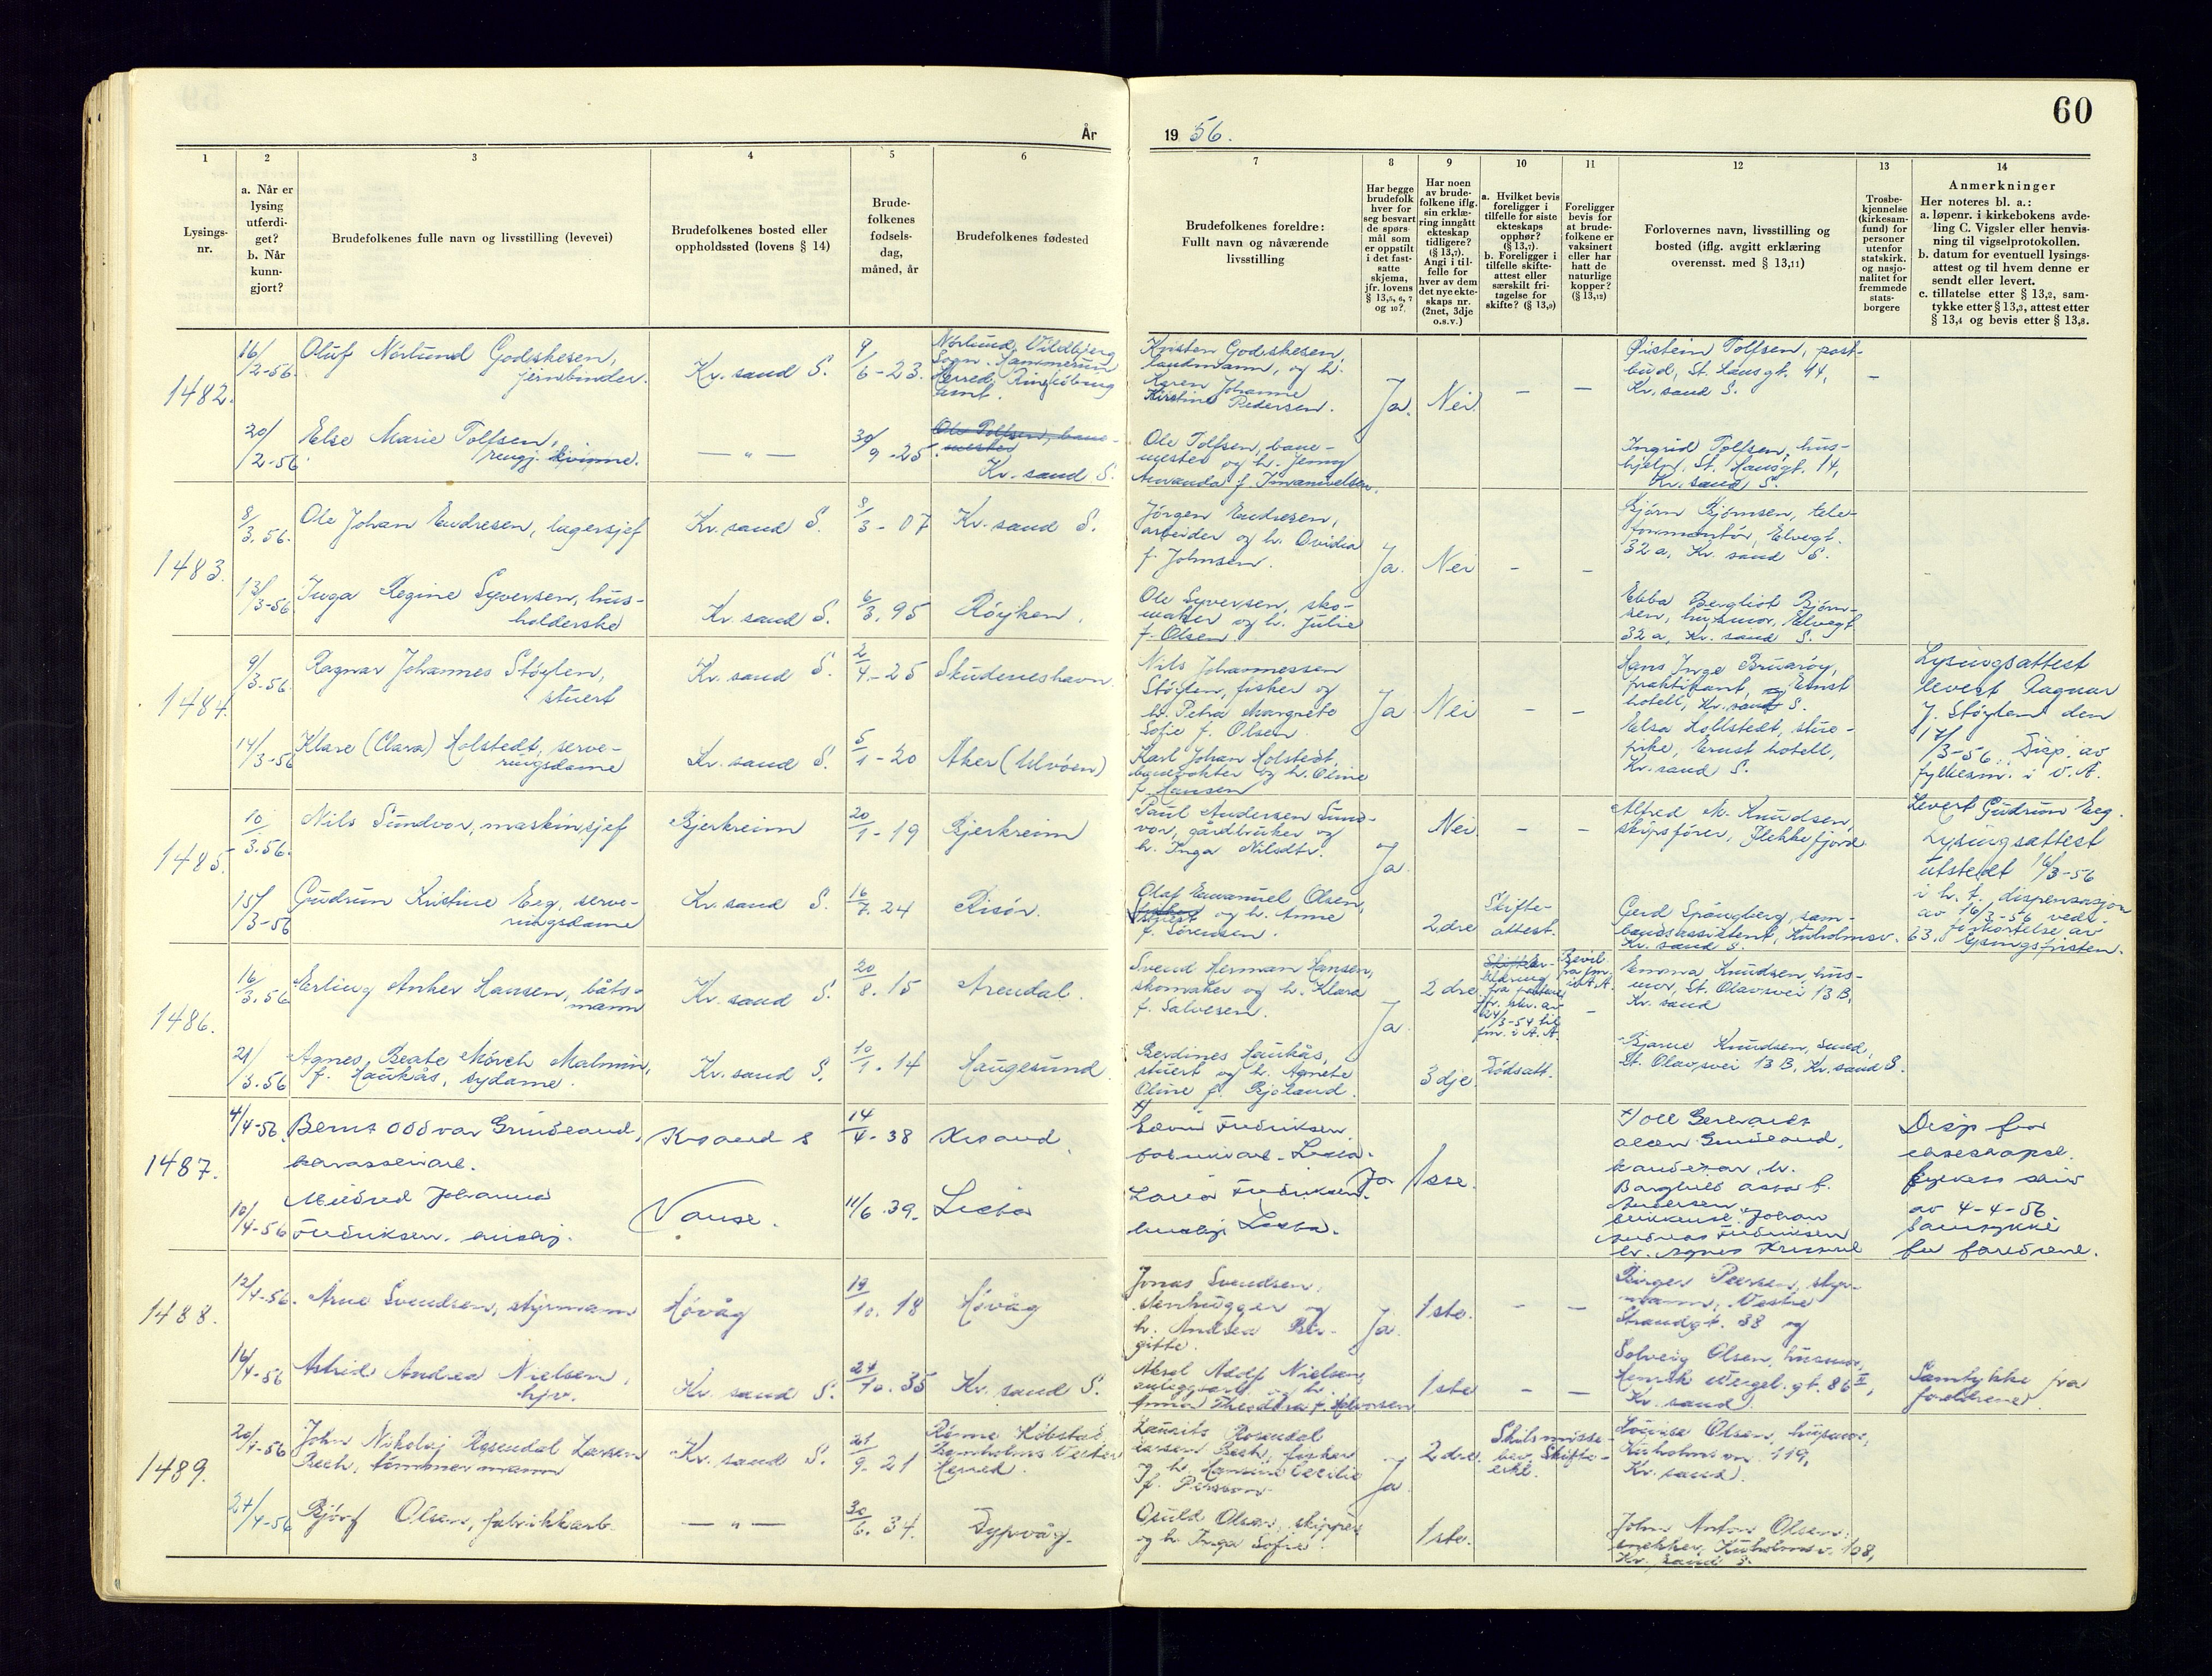 60
År
19 56.
1
2
3
4
5
6
7
8
9
10
11
12
13
14
Lysings-
nr.
a. Når er
lysing
utferdi-
get?
b. Når
kunn-
gjort?
Brudefolkenes fulle navn og livsstilling (levevei)
Brudefolkenes bosted eller
oppholdssted (lovens § 14)
Brude-
folkenes
fødsels-
dag,
måned, år
Brudefolkenes fødested
Brudefolkenes foreldre:
Fullt navn og nåværende
livsstilling
Har begge
brudefolk
hver for
seg besvart
de spørs-
mål som
er oppstilt
i det fast-
satte
skjema,
jfr. lovens
§ 13,5, 6, 7
og 10?
Har noen
av brude-
folkene iflg.
sin erklæ-
ring inngått
ekteskap
tidligere?
(§ 13,7).
Angi i til-
felle for
hver av dem
det nye ekte-
skaps nr.
(2net, 3dje
o.s.v.)
a. Hvilket bevis
foreligger i
tilfelle for siste
ekteskaps
opphør?
(§ 13,7).
b. Foreligger i
tilfelle skifte-
attest eller
særskilt fri-
tagelse for
skifte? (§ 13,9)
Foreligger
bevis for
at brude-
folkene er
vaksinert
eller har
hatt de
naturlige
kopper?
(§ 13,12)
Forlovernes navn, livsstilling og
bosted (iflg. avgitt erklæring
overensst. med § 13,11)
Trosbe-
kjennelse
(kirkesam-
fund) for
personer
utenfor
statskirk.
og nasjo-
nalitet for
fremmede
stats-
borgere
Anmerkninger
Her noteres bl. a.:
a. løpenr. i kirkebokens avde-
ling C. Vigsler eller henvis-
ning til vigselprotokollen.
b. datum for eventuell lysings-
attest og til hvem denne er
sendt eller levert.
c. tillatelse etter § 13,2, sam-
tykke etter § 13,3, attest etter
§ 13,4 og bevis etter § 13,8.
1482.
16/2-56.
Oluf Nörlund Godskesen,
jernbinder.
Kr. sand S.
9/6-23.
Nörlund, Vildbjerg
Sogn. Hammerum
Herred, Ringköbing
amt.
Kristen Godskesen,
landmann, og h.
Karen Johanne
Kirstine Pedersen.
Ja.
Nei.
–
–
Øistein Tolfsen, post-
bud, St. Hansgt. 44,
Kr. sand S.
–
20/2-56
Else Marie Tolfsen,
rengj. kvinne.
— " —
30/9-25.
Ole Tolfsen, bane-
mester
Kr. sand S.
Ole Tolfsen, bane-
mester og h. Jenny
Amanda f.
Ingrid Tolfsen, hus-
hjelp, St. Hansgt. 14,
Kr. sand S.
1483.
8/3.56.
Ole Johan Endresen, lagersjef
Kr. sand S.
8/3-07
Kr. sand S.
Jörgen Endresen,
arbeider og h. Ovidia
f. Johnsen.
Ja.
Nei
–
–
Björn Björnsen, tele-
fonmontör, Elvegt.
32a, Kr. sand S.
13/3-56
Inga Regine Syversen, hus-
holderske
Kr. sand S.
6/3.95
Röyken.
Ole Syversen, sko-
maker og h. Julie
f. Olsen
Ebba Bergliot Björn-
sen, husmor, Elvegt.
32a, Kr. sand S.
1484.
9/3-56.
Ragnar Johannes Stöylen,
stuert
Kr. sand S.
2/4-25
Skudeneshavn.
Nils Johannessen
Stöylen, fisker og
h. Petra Margrete
Sofie f. Olsen
Ja
Nei
–
–
Hans Inge Bruaröy,
praktikant, Ernst
hotell, Kr. sand S.
Lysingsattest
levert Ragnar
J. Stöylen den
17/3-56. Disp. av
fylkesm. i V.A.
14/3-56
Klare (Clara) Holstedt, serve-
ringsdame
Kr. sand S.
5/1-20
Aker (Ulvöen)
Karl Johan Holstedt,
banevokter og h. Oline
f. Hansen
Elsa Hollstedt, stue-
pike, Ernst hotell,
Kr. sand S.
1485.
10/3.56.
Nils Sundvor, maskinsjef
Bjerkreim
20/1-19
Bjerkreim
Paul Andersen Sund-
vor, gårdbruker og
h. Inga Nilsdtr.
Ja
Nei
–
–
Alfred M. Knudsen,
skipsförer, Flekkefjord
Levert Gudrun Eeg.
Lysingsattest
utstedt 16/3-56
i h. t. dispensasjon
av 16/3-56 vedr.
forkortelse av
lysingsfristen.
15/3-56
Gudrun Kristine Eeg, serve-
ringsdame
Kr. sand S.
16/7.24
Risör.
Olaf Emanuel Olsen,
og h. Anne
f. Sörensen.
2.dre
Skifte-
attest.
Gerd Spångberg, sam-
bandsassistent, Kuholmsv. 63.
Kr. sand S.
1486.
16/3.56
Erling Anker Hansen, båts-
mann
Kr. sand S.
20/8.15
Arendal.
Svend Herman Hansen,
skomaker og h. Klara
f. Salvesen.
Ja
2 dre
–
Emma Knudsen, hus-
mor, St. Olavsvei 13 B,
Kr. sand
21/3.56
Agnes Beate Mörch Malmin,
f. Haukås, sydame.
Kr. sand S.
10/1.14
Haugesund
Berdines Haukås,
stuert og h. Agnete
Oline f. Bjoland.
3 dje
Dödsatt.
Bjarne Knudsen, smed,
St. Olavsvei 13 B, Kr. sand S.
1487.
4/4-56.
Krsand S
14/4-38
Krsand.
Ja
1ste.
Disp fra
ekteskapsl.
av 4-4-56.
Samtykke
fra foreldrene.
10/4-56
Mildred Johanna
Fredriksen.
Vanse.
11/6.39.
Lista
1488.
12/4-56.
Arne Svendsen, styrmann
Hövåg
19/10.18
Hövåg
Jonas Svendsen,
stenhugger og
h. Andrea Bir-
gitte.
Ja.
1 ste.
–
–
Birger Persen, styr-
mann, Vestre
Strandgt. 38 og
16/4-56
Astrid Andrea Nielsen,
hjv.
Kr. sand S.
24/10.35
Kr. sand S.
Aksel Adolf Nielsen,
anleggsarb. og h.
Theodora f. Halvorsen
1 ste
–
–
Solveig Olsen, husmor,
Henrik Wergel. gt. 86 II,
Kr. sand.
Samtykke fra
foreldrene
1489.
20/4-56
John Nikolaj Rosendal Larsen
Bech, tömmermann
Kr. sand S.
21/9.21
Rönne Köbstad,
Bornholms Vester
Herred.
Laurits Rosendal
Larsen Bech, fisker
og h. Hansine Cecilie
f. Persson
Ja
2 dre.
Skilsmisse-
bev. Skifte-
erkl.
Louise Olsen, husmor,
Kuholmsvn. 119,
Kr. sand.
24/4-56
Bjørg Olsen, fabrikkarb.
— " —
30/6.34.
Dypvåg.
Osuld Olsen, skipper
og h. Inga Sofie.
1 ste.
John Anton Olsen,
snekker, Kuholmsv. 108,
Kr. sand S.